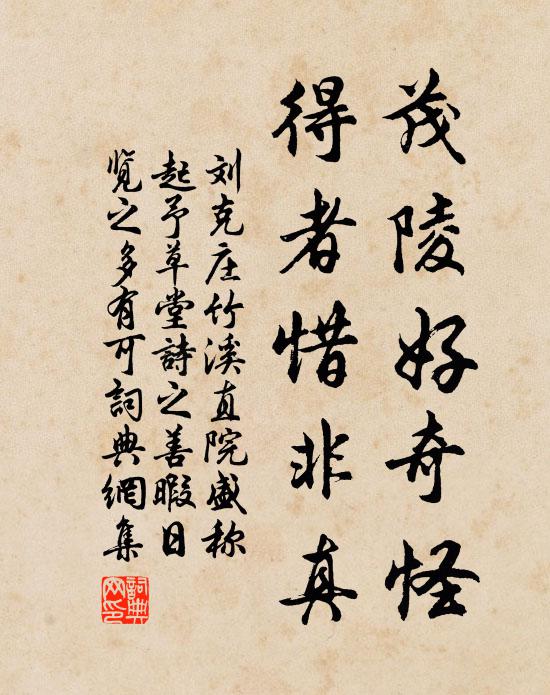 茂陵好奇怪
得者惜非真
刘克庄竹溪直院盛称
起予草堂詩之善暇日
览之多有可詞典網集
詞典网印